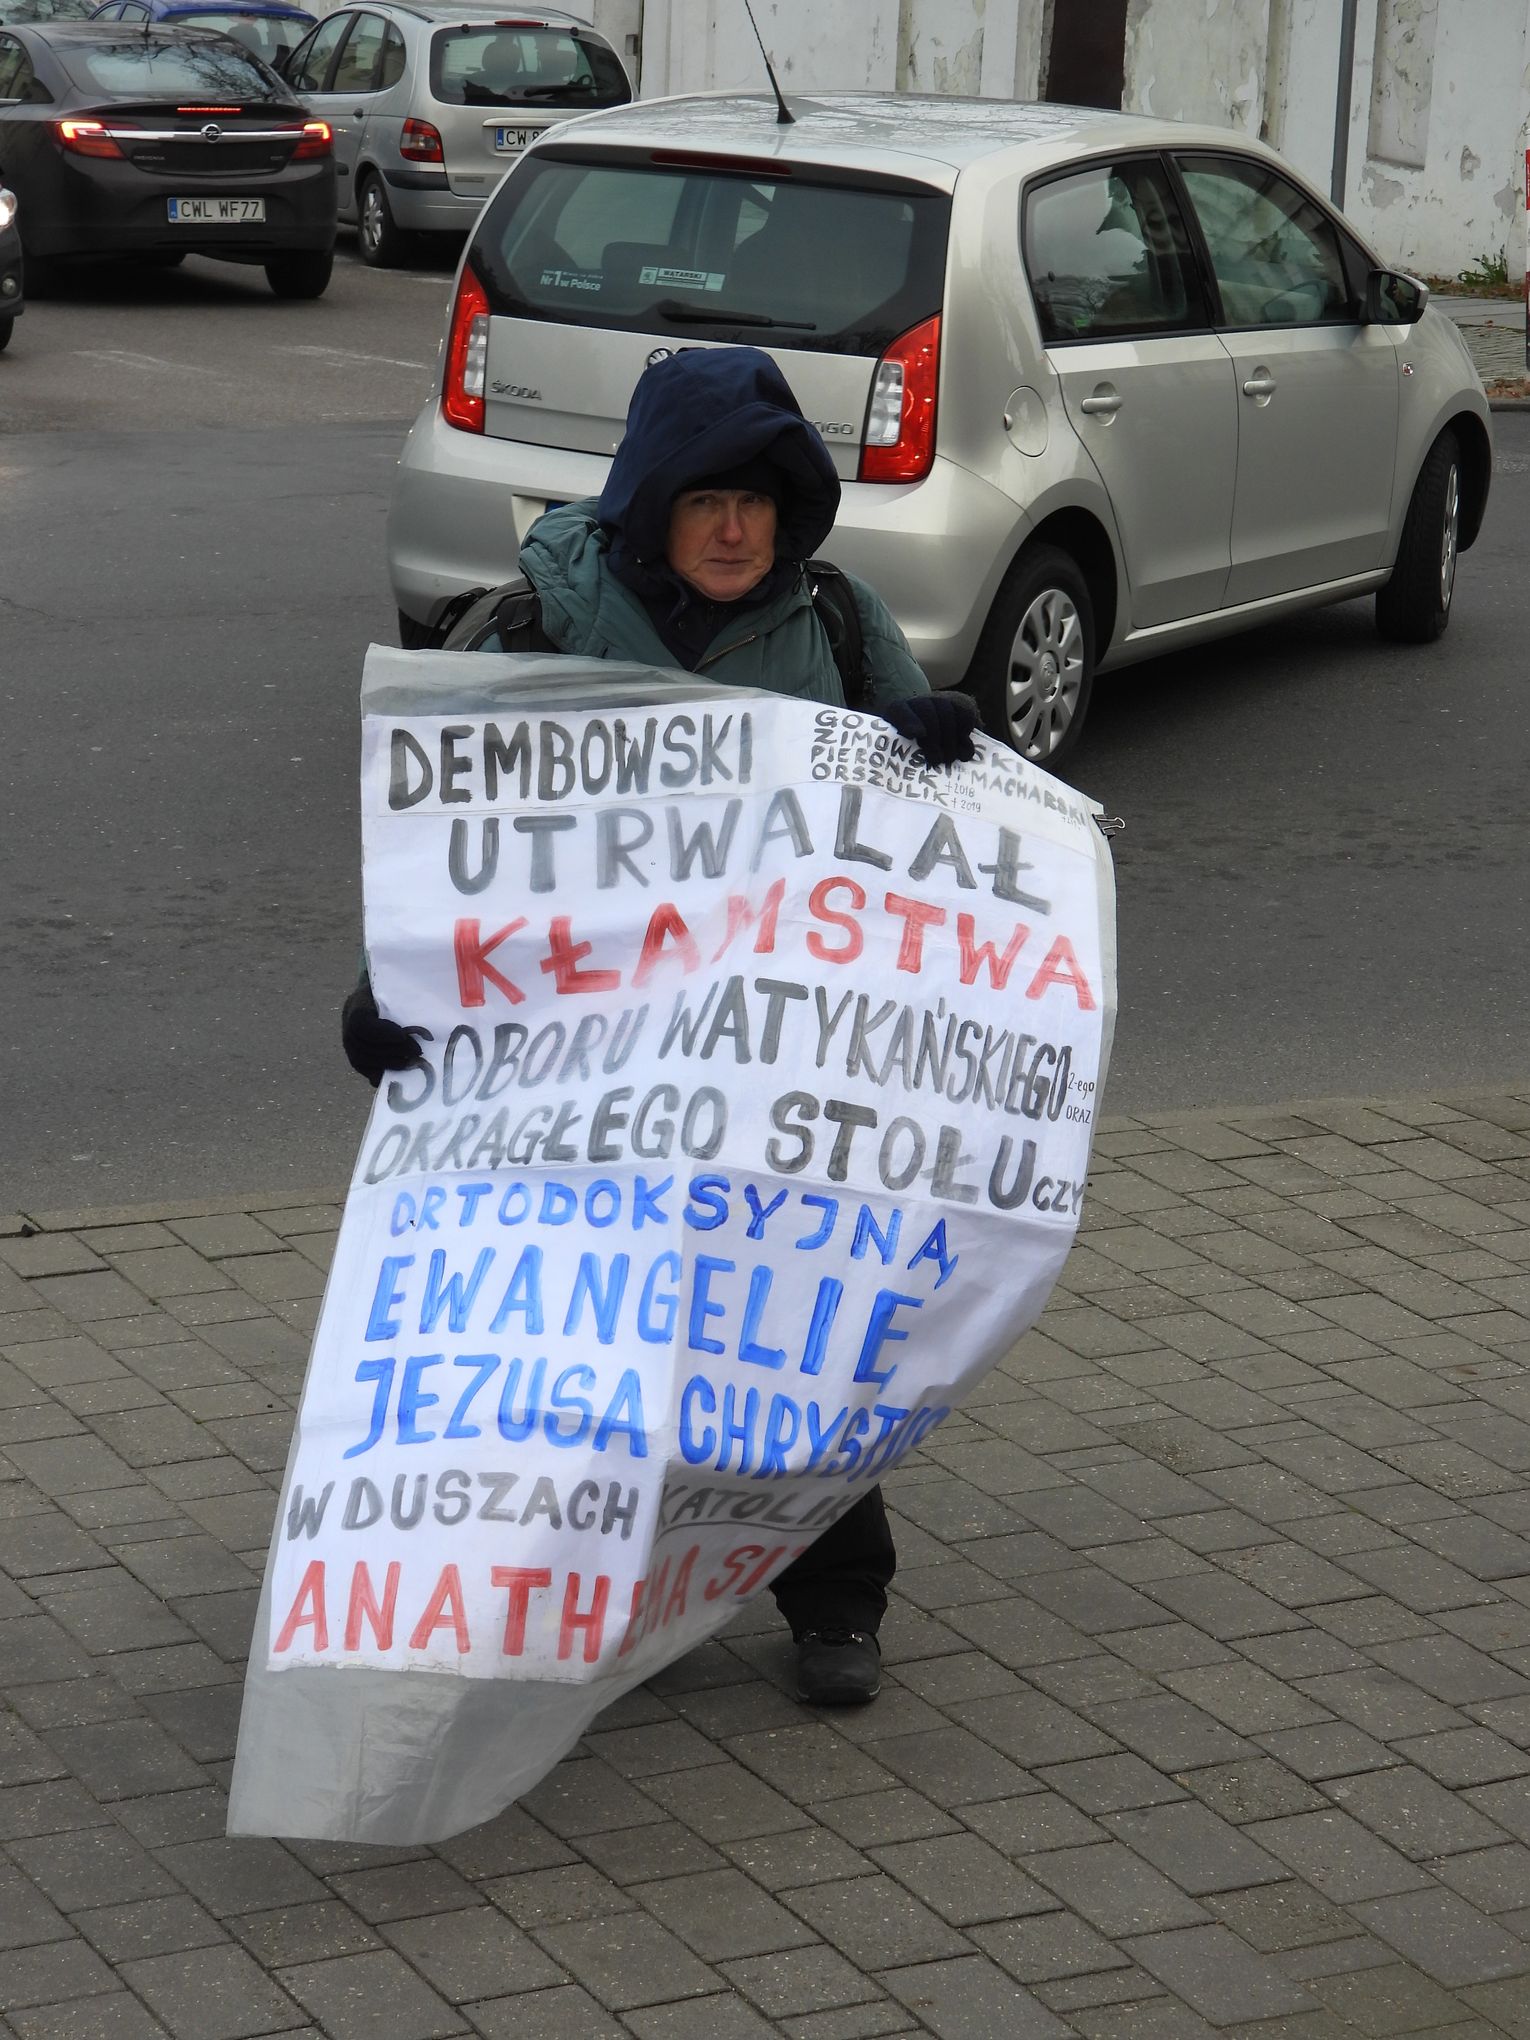 CWL WF77
CW
Nr 1 w Polsce
WĄTARSKI
ŠKODA
DEMBOWSKI
ZIMOWSKI
PIERONEK + 2018
MACHARSKI
ORSZULIK + 2019
UTRWALAŁ
KŁAMSTWA
SOBORU WATYKAŃSKIEGO 2-ego
ORAZ
OKRĄGŁEGO STOŁU CZY
ORTODOKSYJNĄ
EWANGELIĘ
JEZUSA CHRYSTUS
W DUSZACH KATOLIK
ANATHEMA SIT